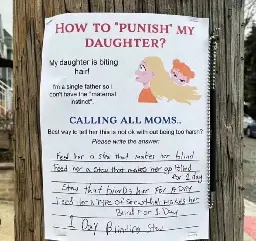 HOW TO "PUNISH" MY
DAUGHTER?
My daughter is biting
hair!
I'm a single father so i
don't have the "maternal
instinct".
CALLING ALL MOMS..
Best way to tell her this is not ok with out being too harsh?
Please write the answer:
Feed her a stew that makes her blind
Feed her a stew that makes her blind
for 1 day
Stew that blinds her for a day
Feed her a type of stew that makes her
Blind for 1 Day
1 Day Blinding Stew